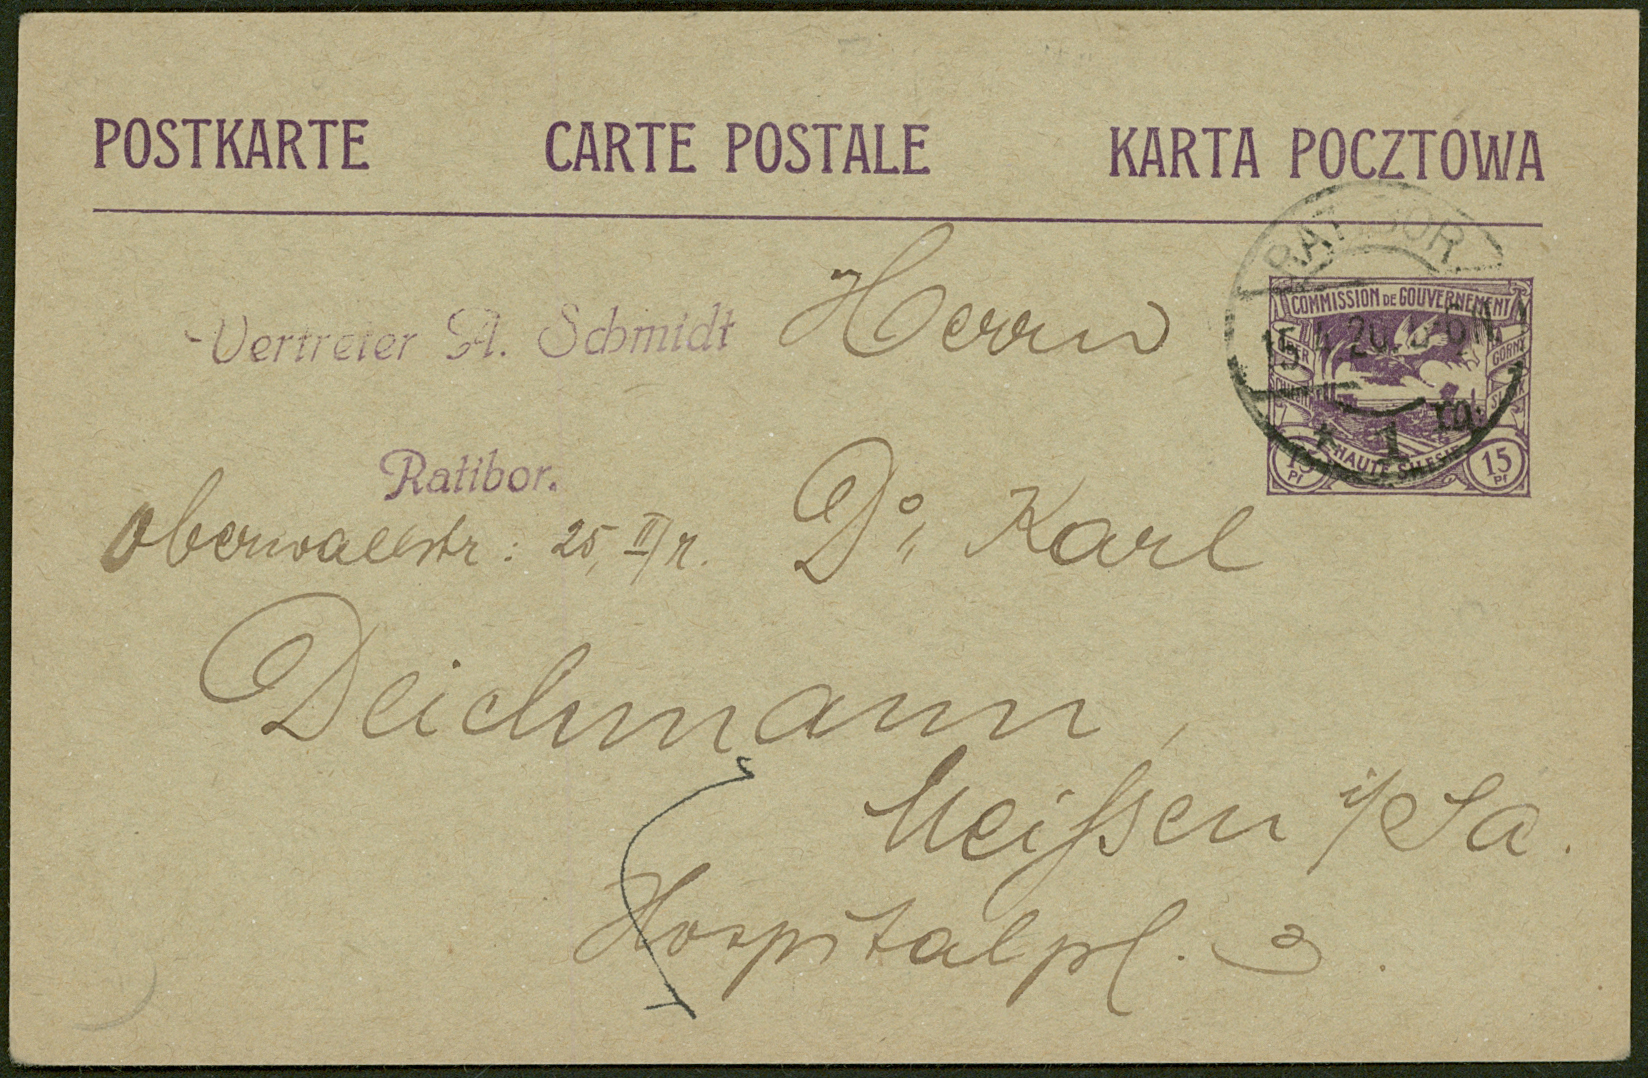 POSTKARTE CARTE POSTALE KARTA POCZTOWA
RATIBOR
COMMISSION DE GOUVERNEMENT
15 4 20
GORNY
* 1 m
HAUTE SILESIE
15 Pf 15 Pf
Vertreter A. Schmidt
Ratibor.
Oberwallstr: 25, II/r.
Herrn
Dr. Karl
Deichmann,
Meißen i/Sa.
Hospitalpl. 3.